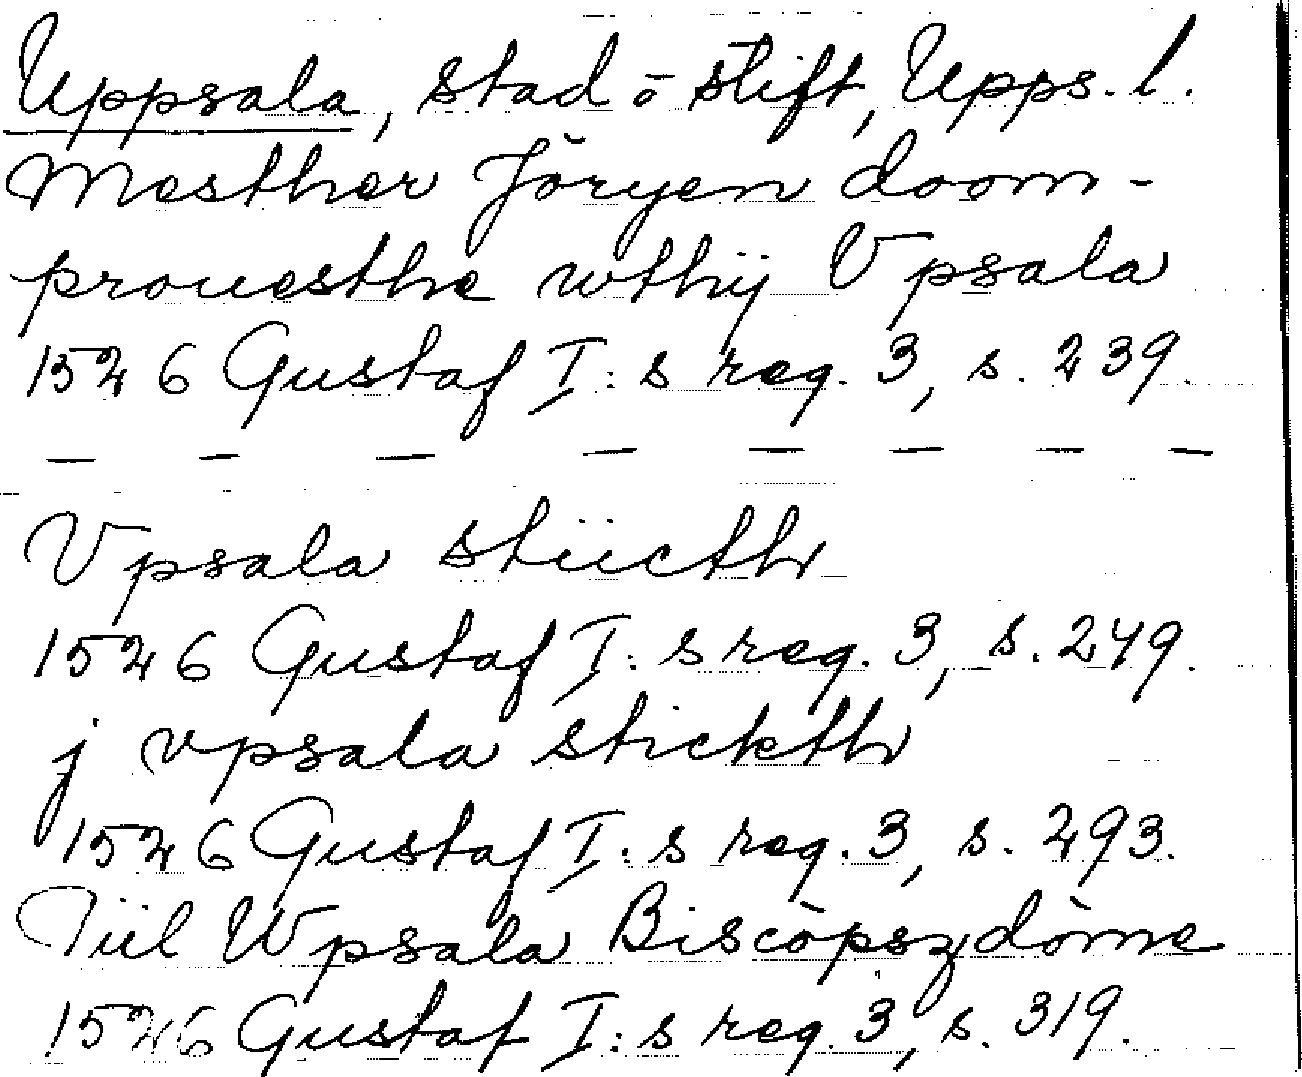 Uppsala, stad ō stift, Upps. l.
Mesther Jöryen doom-
prouesthe wthij Vpsala
1526 Gustaf I:s reg. 3, s. 239.
— — — — — — — —
Vpsala stiicth
1526 Gustaf I:s reg. 3, s. 249.
j vpsala stickth
1526 Gustaf I:s reg. 3, s. 293.
Tiil Wpsala Biscöpszdöme
1526 Gustaf I:s reg. 3, s. 319.